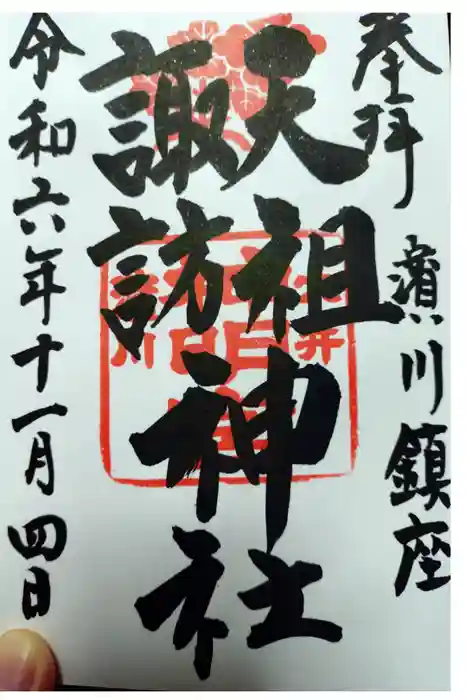 奉拝 濱川鎮座
天祖
諏訪
神社
令和六年十一月四日